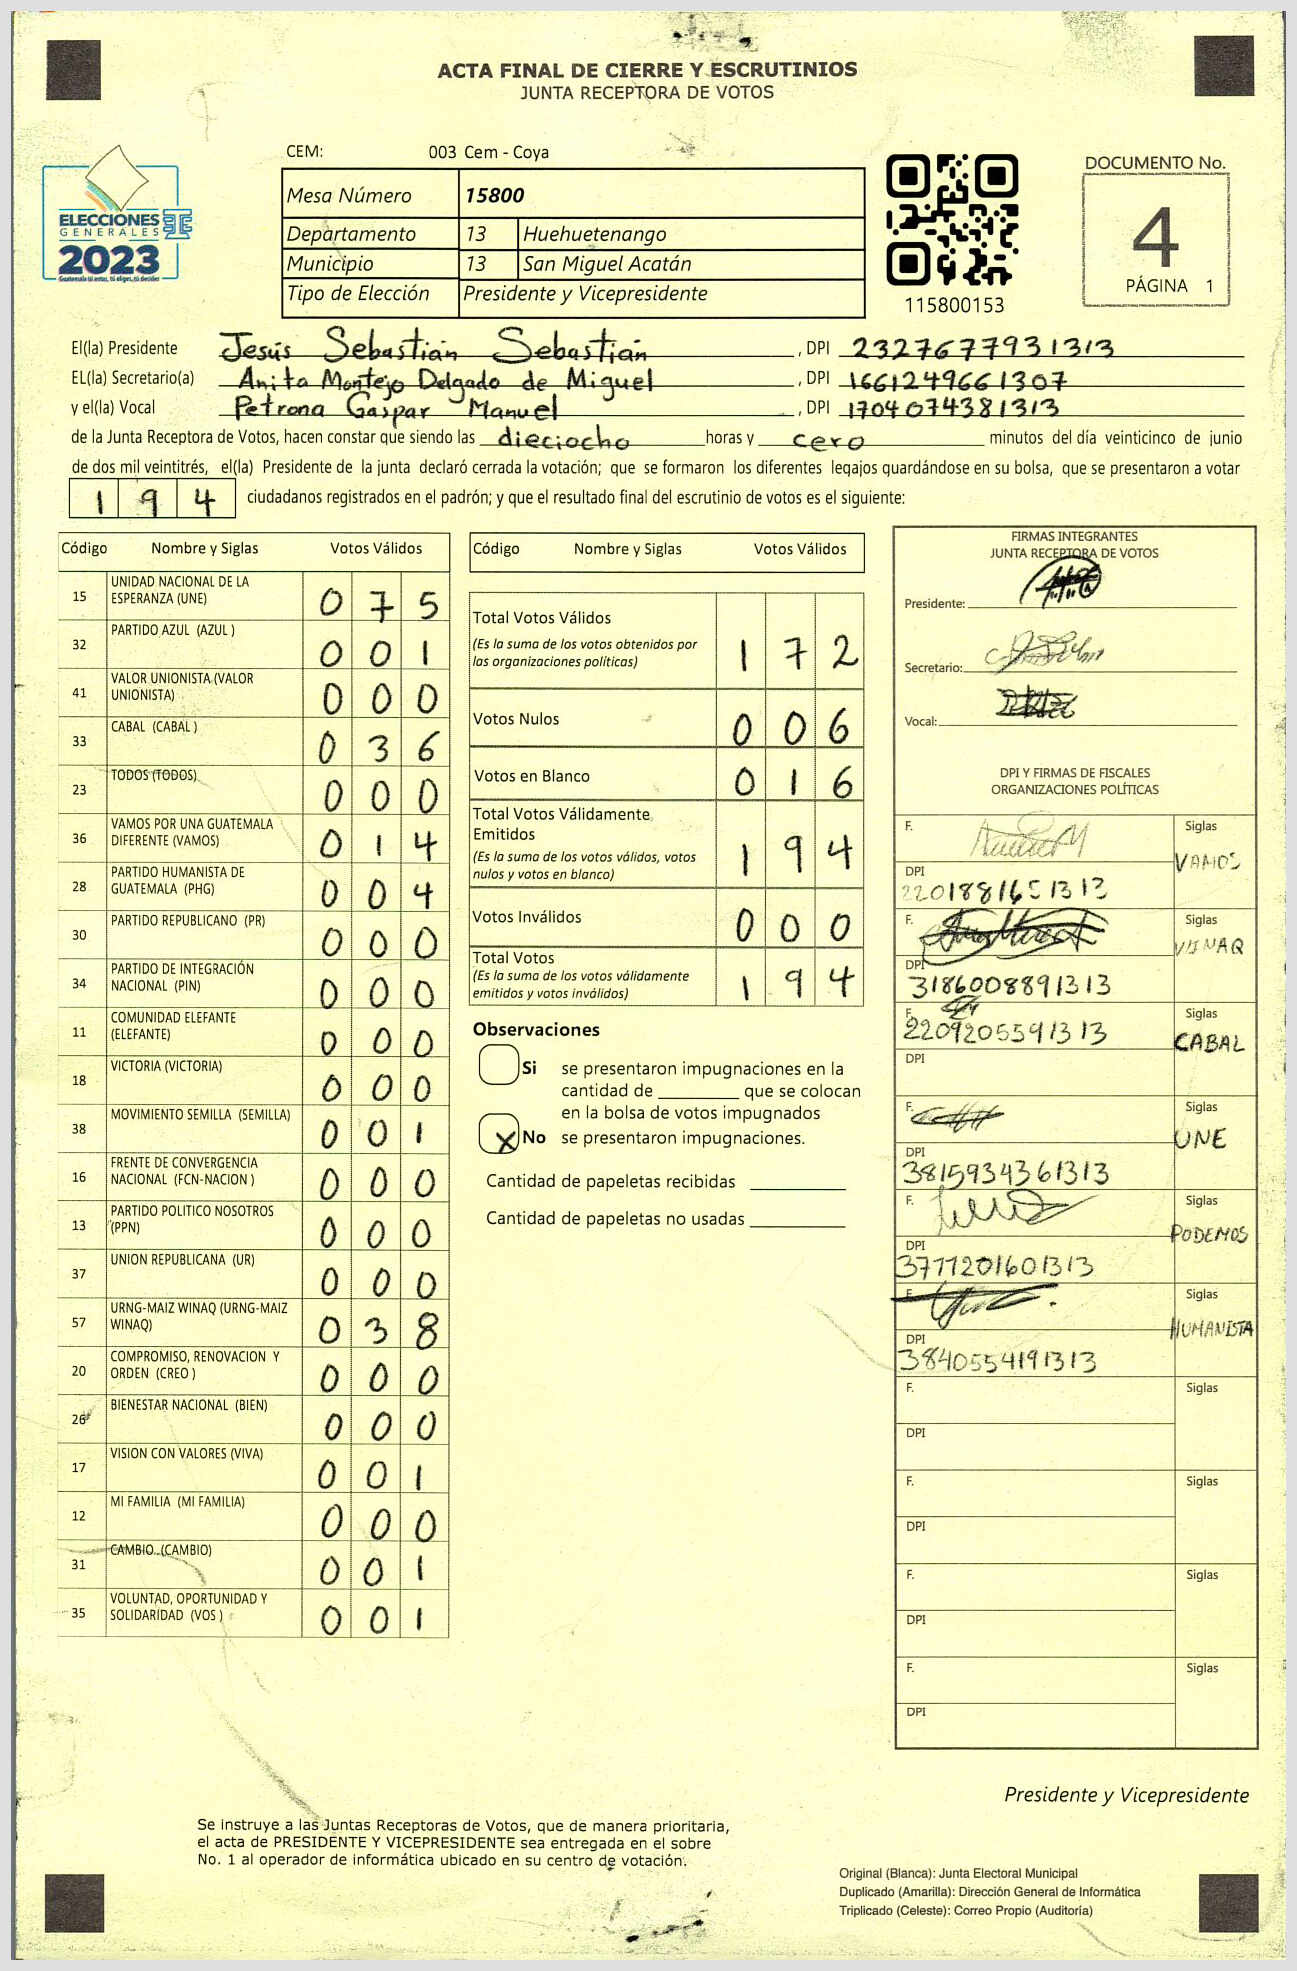 ACTA FINAL DE CIERRE Y ESCRUTINIOS
JUNTA RECEPTORA DE VOTOS
ELECCIONES
GENERALES
2023
Guatemala tú entras, tú eliges, tú decides
CEM: 003 Cem - Coya
Mesa Número 15800
Departamento 13 Huehuetenango
Municipio 13 San Miguel Acatán
Tipo de Elección Presidente y Vicepresidente
115800153
DOCUMENTO No.
4
PÁGINA 1
El(la) Presidente Jesús Sebastián Sebastián, DPI 2327677931313
EL(la) Secretario(a) Anita Montejo Delgado de Miguel, DPI 1661249661307
y el(la) Vocal Petrona Gaspar Manuel, DPI 1704074381313
de la Junta Receptora de Votos, hacen constar que siendo las dieciocho horas y cero minutos del día veinticinco de junio
de dos mil veintitrés, el(la) Presidente de la junta declaró cerrada la votación; que se formaron los diferentes legajos guardándose en su bolsa, que se presentaron a votar
194 ciudadanos registrados en el padrón; y que el resultado final del escrutinio de votos es el siguiente:
Código Nombre y Siglas Votos Válidos
15 UNIDAD NACIONAL DE LA ESPERANZA (UNE) 075
32 PARTIDO AZUL (AZUL ) 001
41 VALOR UNIONISTA (VALOR UNIONISTA) 000
33 CABAL (CABAL ) 036
23 TODOS (TODOS) 000
36 VAMOS POR UNA GUATEMALA DIFERENTE (VAMOS) 014
28 PARTIDO HUMANISTA DE GUATEMALA (PHG) 004
30 PARTIDO REPUBLICANO (PR) 000
34 PARTIDO DE INTEGRACIÓN NACIONAL (PIN) 000
11 COMUNIDAD ELEFANTE (ELEFANTE) 000
18 VICTORIA (VICTORIA) 000
38 MOVIMIENTO SEMILLA (SEMILLA) 001
16 FRENTE DE CONVERGENCIA NACIONAL (FCN-NACION ) 000
13 PARTIDO POLITICO NOSOTROS (PPN) 000
37 UNION REPUBLICANA (UR) 000
57 URNG-MAIZ WINAQ (URNG-MAIZ WINAQ) 038
20 COMPROMISO, RENOVACION Y ORDEN (CREO ) 000
26 BIENESTAR NACIONAL (BIEN) 000
17 VISION CON VALORES (VIVA) 001
12 MI FAMILIA (MI FAMILIA) 000
31 CAMBIO (CAMBIO) 001
35 VOLUNTAD, OPORTUNIDAD Y SOLIDARIDAD (VOS ) 001
Código Nombre y Siglas Votos Válidos
Total Votos Válidos 172
(Es la suma de los votos obtenidos por
las organizaciones políticas)
Votos Nulos 006
Votos en Blanco 016
Total Votos Válidamente
Emitidos 194
(Es la suma de los votos válidos, votos
nulos y votos en blanco)
Votos Inválidos 000
Total Votos 194
(Es la suma de los votos válidamente
emitidos y votos inválidos)
Observaciones
Si se presentaron impugnaciones en la
cantidad de ________ que se colocan
en la bolsa de votos impugnados
X No se presentaron impugnaciones.
Cantidad de papeletas recibidas
Cantidad de papeletas no usadas
FIRMAS INTEGRANTES
JUNTA RECEPTORA DE VOTOS
Presidente:
Secretario:
Vocal:
DPI Y FIRMAS DE FISCALES
ORGANIZACIONES POLÍTICAS
F. Siglas VAMOS
DPI 2201881651313
F. Siglas WINAQ
DPI 3186008891313
F. 2209205591313 Siglas CABAL
DPI
F. Siglas UNE
DPI 3815934361313
F. Siglas PODEMOS
DPI 3771201601313
F. Siglas HUMANISTA
DPI 3840554191313
F. Siglas
DPI
F. Siglas
DPI
F. Siglas
DPI
F. Siglas
DPI
Presidente y Vicepresidente
Se instruye a las Juntas Receptoras de Votos, que de manera prioritaria,
el acta de PRESIDENTE Y VICEPRESIDENTE sea entregada en el sobre
No. 1 al operador de informática ubicado en su centro de votación.
Original (Blanca): Junta Electoral Municipal
Duplicado (Amarilla): Dirección General de Informática
Triplicado (Celeste): Correo Propio (Auditoría)